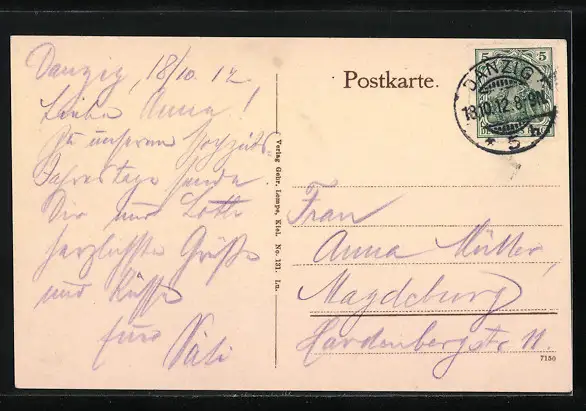 Danzig, 18/10. 12.
Liebe Anna!
Zu unserem Hochzeits
Jahrestage sende
Dir und Lotte
herzlichste Grüße
und Küsse
Postkarte.
5 5
DANZIG
18.10.12.8-9N.
* 5 h
Verlag Gebr. Lempe, Kiel. No. 131. Ln.
Frau
Anna Müller,
Magdeburg
Hardenbergstr. 11.
7150